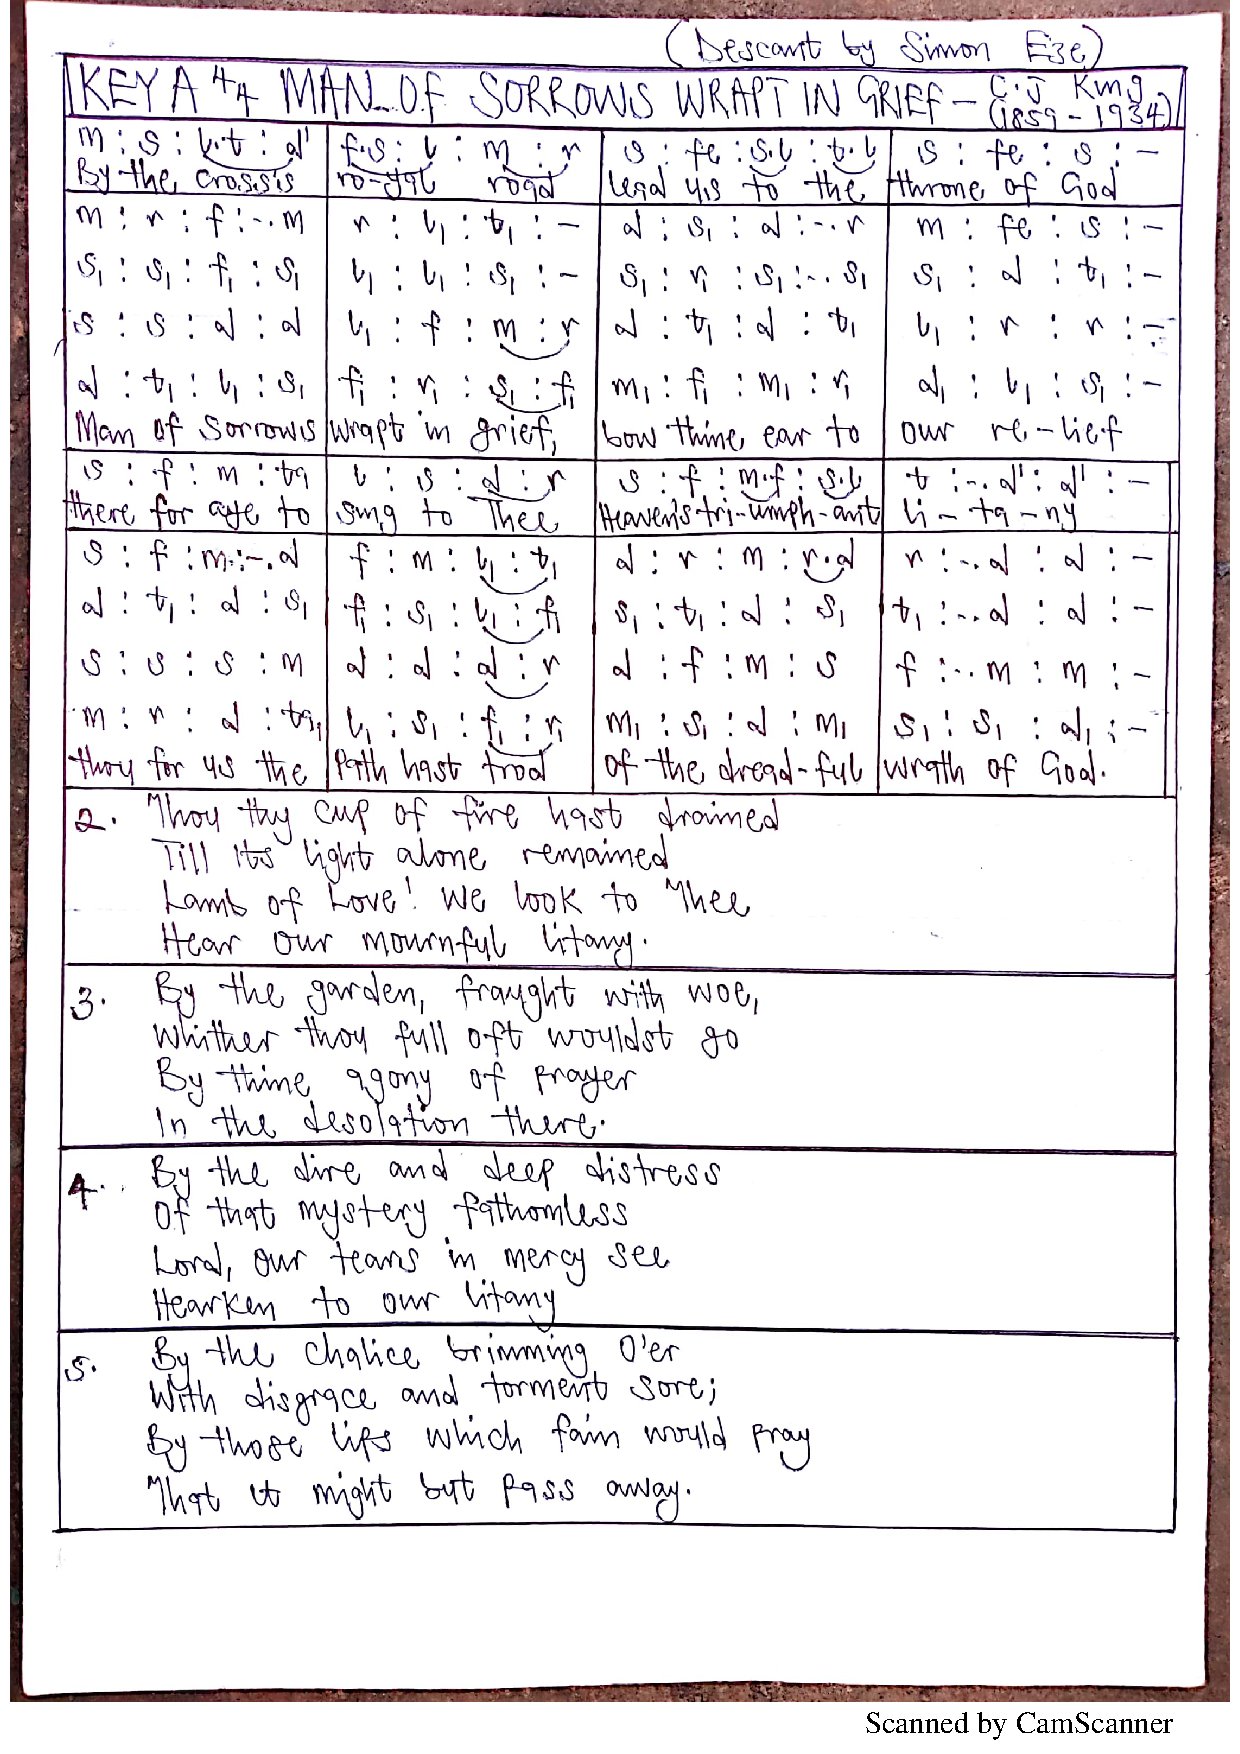 (Descant by Simon Eze)
KEY A 4/4 MAN OF SORROWS WRAPT IN GRIEF - C.J King (1859-1934)
m : s : l.t : d' | f.s : l : m : r | s : fe : s.l : t.l | s : fe : s : -
By the cross's | ro-yal road | lead us to the | throne of God
m : r : f : -.m | r : l₁ : t₁ : - | d : s₁ : d : -.r | m : fe : s : -
s₁ : s₁ : f₁ : s₁ | l₁ : l₁ : s₁ : - | s₁ : r₁ : s₁ : -.s₁ | s₁ : d : t₁ : -
s : s : d : d | l₁ : f : m : r | d : t₁ : d : t₁ | l₁ : r : r : -
d : t₁ : l₁ : s₁ | f₁ : r₁ : s₁ : f₁ | m₁ : f₁ : m₁ : r₁ | d₁ : l₁ : s₁ : -
Man of Sorrows | wrapt in grief, | bow thine ear to | our re-lief
s : f : m : ta | l : s : d : r | s : f : m.f : s.l | t : -.d' : d' : -
there for aye to | sing to Thee | Heaven's tri-umph-ant | li-ta-ny
s : f : m : -.d | f : m : l₁ : t₁ | d : r : m : r.d | r : -.d : d : -
d : t₁ : d : s₁ | f₁ : s₁ : l₁ : f₁ | s₁ : t₁ : d : s₁ | t₁ : -.d : d : -
s : s : s : m | d : d : d : r | d : f : m : s | f : -.m : m : -
m : r : d : ta₁ | l₁ : s₁ : f₁ : r₁ | m₁ : s₁ : d : m₁ | s₁ : s₁ : d₁ : -
thou for us the | Path hast trod | of the dread-ful | wrath of God.
2. Thou thy cup of fire hast drained
Till its light alone remained
Lamb of Love! We look to Thee
Hear our mournful litany.
3. By the garden, fraught with woe,
Whither thou full oft wouldst go
By thine agony of prayer
In the desolation there.
4. By the dire and deep distress
Of that mystery fathomless
Lord, our tears in mercy see
Hearken to our litany
5. By the chalice brimming O'er
With disgrace and torment sore;
By those lips which fain would pray
That it might but pass away.
Scanned by CamScanner